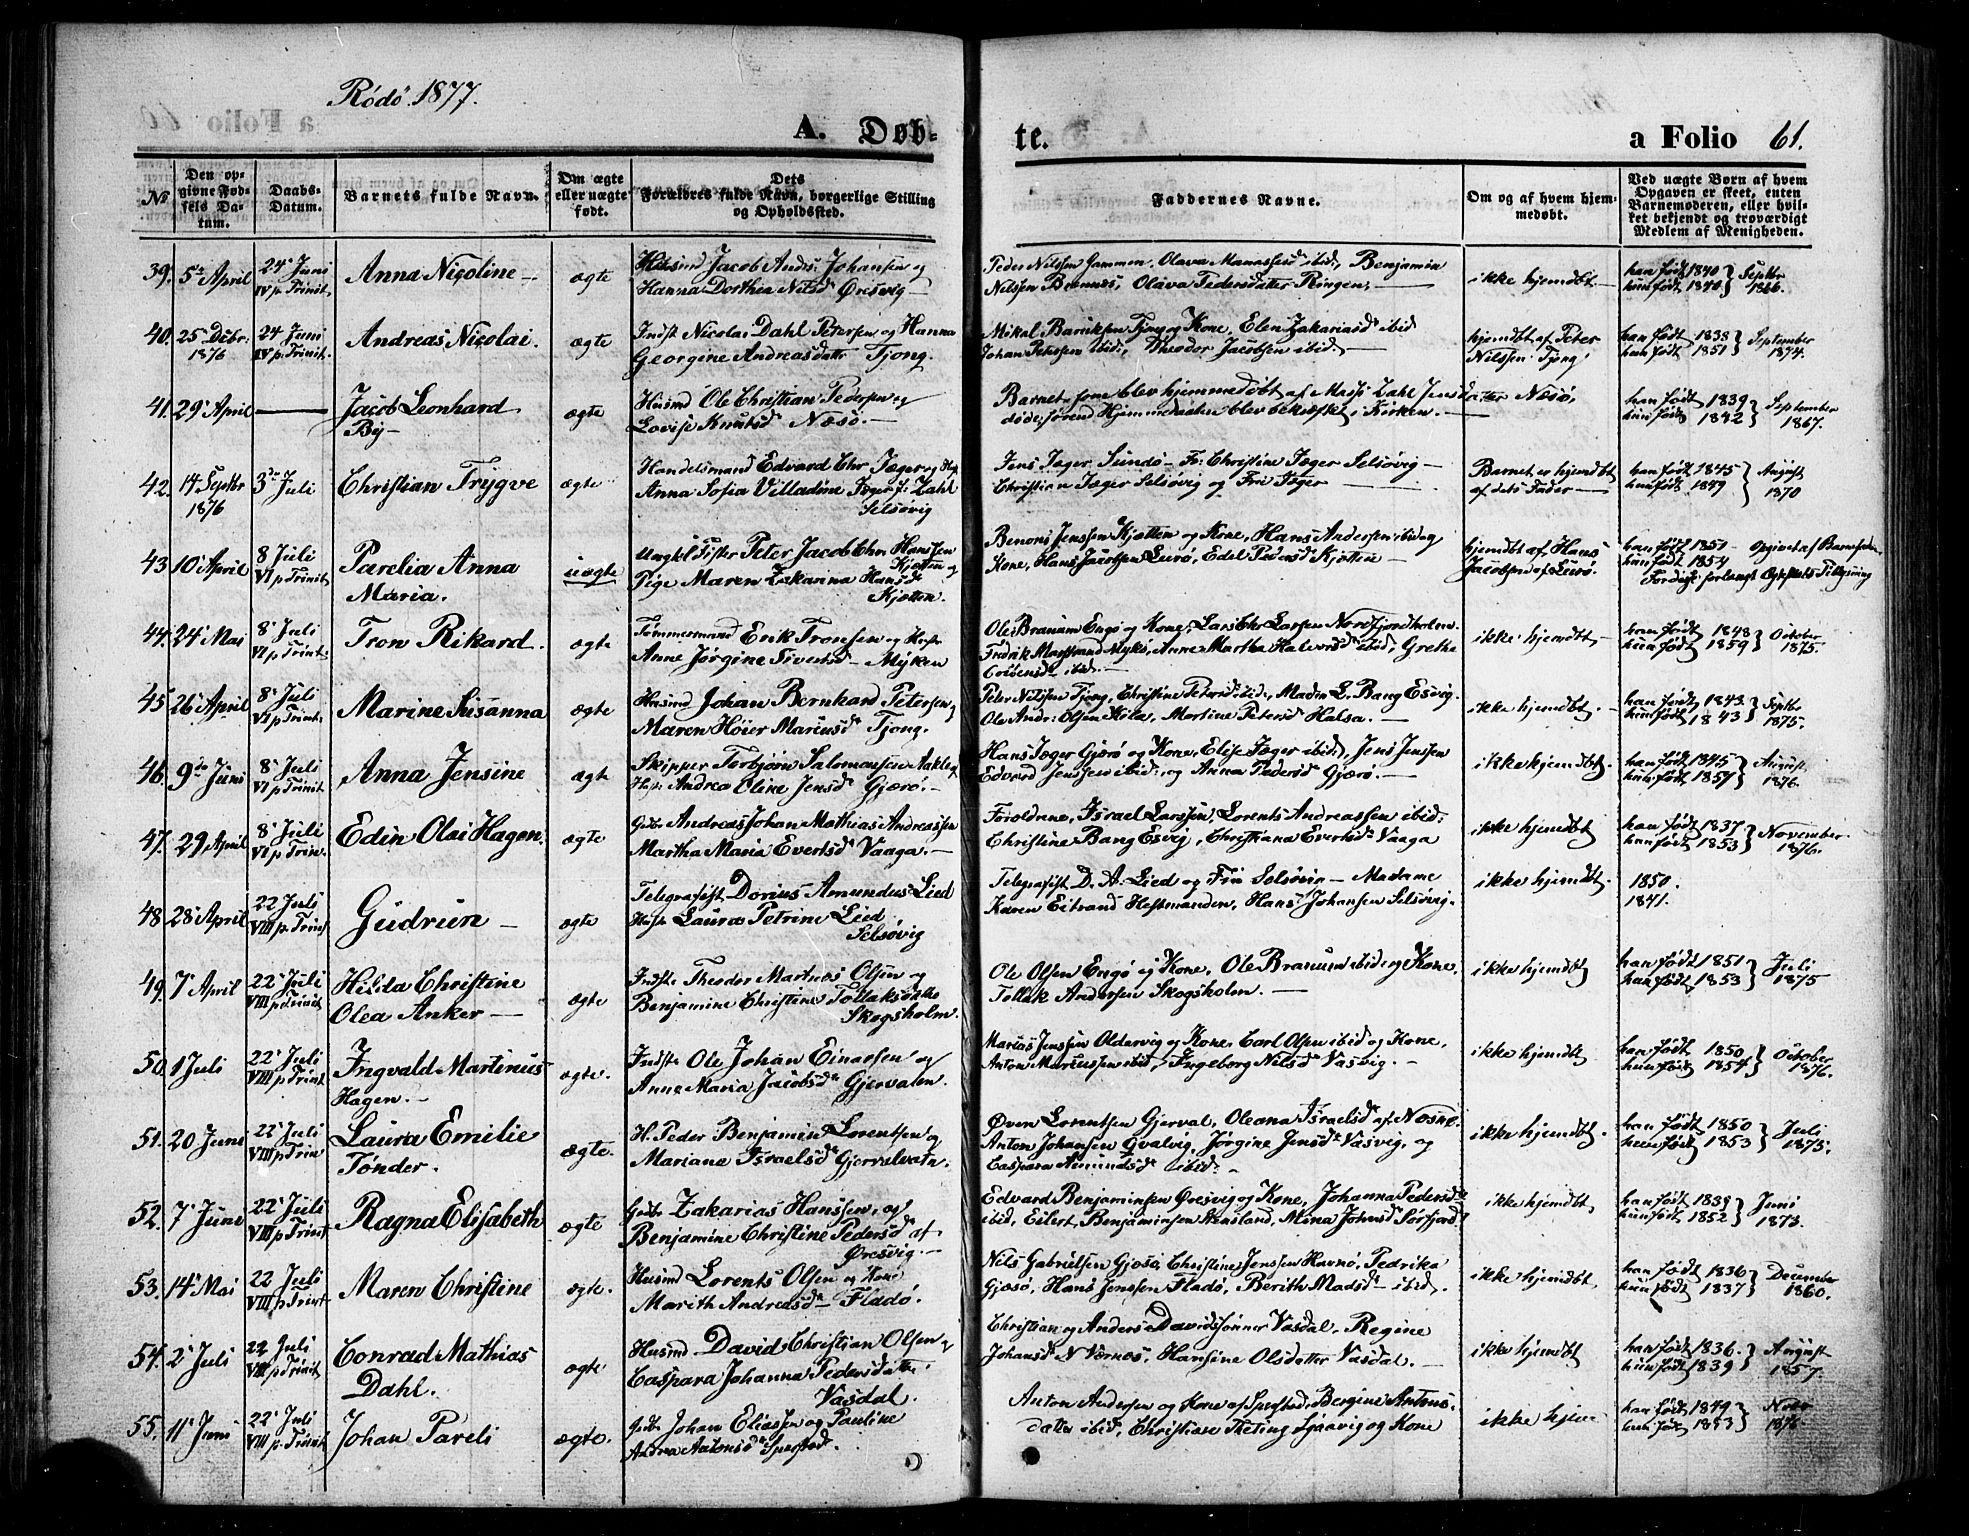 Rödö 1877.
A. Døb-
te.
a Folio 61.
№
Den op-
givne Fød-
sels Da-
tum.
Daabs-
Datum.
Barnets fulde Navn.
Om ægte
eller uægte
født.
Dets
Forældres fulde Navn, borgerlige Stilling
og Opholdssted.
Faddernes Navne.
Om og af hvem hjem-
medøbt.
Ved uægte Børn af hvem
Opgaven er skeet, enten
Barnemoderen, eller hvil-
ket bekjendt og troværdigt
Medlem af Menigheden.
39. 5te April
24' Juni
IV p. Trinit.
Anna Nicoline
ægte
Husmd Jacob Andr: Johansen og
Hanna Dorthea Nilsd Øresvig
Peder Nilssen Gammen, Olava Manassesd ibid, Benjamin
Nilssen Bremnes, Olava Pedersdatter Ringen,
ikke hjemdbt.
han født 1840
hun født 1840 } Septbr 1866.
40. 25 Decbr. 1876
24 Juni
IV p. Trinit.
Andreas Nicolai.
ægte
Indst. Nicolai Dahl Petersen og Hanna
Georgine Andreasdatt Tjong.
Mikal Bariksen Tjong og Kone, Elen Zakariasd ibid
Johan Petersen ibid, Theodor Jacobsen ibid.
hjemdbt af Peter
Nilssen Tjong
han født 1838
hun født 1851 } September 1874.
41. 29' April
Jacob Leonhard
By
ægte
Husmd Ole Christian Pedersen og
Lovise Knutsd Næsö.
Barnet som blev hjemmedøbt af Massi Zahl Jensdatter Næsö,
døde, førend Hjemmedaaben blev bekræftet i Kirken.
han født 1839
hun født 1842 } September 1867.
42. 14 Septbr 1876
3die Juli
Christian Trygve
ægte
Handelsmand Edvard Chr Jæger og Hst
Anna Sofia Villadine Jæger f. Zahl
Selsövig
Jens Jæger Sundö Fr: Christine Jæger Selsövig
Christian Jæger Selsövig og Fru Jæger
Barnet er hjemdbt
af dets Fader
han født 1845
hun født 1849 } August 1870
43. 10' April
8 Juli
VI p Trinit
Parelia Anna
Maria.
uægte
Ungkl Fisker Peter Jacob Chr Hanssen
Kjøtten og
Pige Maren Zakarina Hansd
Kjøtten.
Benoni Jenssen Kjøtten og Kone, Hans Andersen ibid og
Kone, Hans Jacobsen Lurö, Edel Pedersd Kjøtten
hjemdbt af Hans
Jacobsen af Lurö.
han født 1851
hun født 1854
Opgivet af Barnefaderen
44. 24' Mai
8' Juli
VI p. Trinit.
Tron Rikard.
ægte
Tømmermand Erik Tronsen og Hust
Anne Jørgine Sivertsd Myken
Ole Branum Engö og Kone, Lars Chr Larsen Nordfjordholm.
Fredrik Myken, Anne Martha Halvorsd ibid, Grethe
ibid.
ikke hjemdbt
han født 1848
hun født 1859 } October 1875.
45. 26' April
8' Juli
VI p. Trinit.
Marine Susanna
ægte
Husmd Johan Bernhard Petersen og
Maren Höier Mariusd Tjong.
Peter Nilssen Tjong, Christine Petersd ibid, Madm L. Bang Esvig.
Ole Andr: Olsen Kila, Martine Petersd Halsa.
ikke hjemdbt.
han født 1843
hun født 1843 } Septbr 1875.
46. 9de Juni
8' Juli
VI p. Trinit.
Anna Jensine
ægte
Skipper Torbjørn Salomonsen Nakling
Hust Andrea Oline Jensd Gjærö.
Hans Jæger Gjærö og Kone, Elise Jæger ibid, Jens Jenssen
Edvard Jenssen ibid, og Anna Pedersd Gjærö.
ikke hjemdbt.
han født 1845
hun født 1857 } August 1876.
47. 29 April
8' Juli
VI p. Trin.
Edin Olai Hagen.
ægte
Gdbr Andreas Johan Mathias Andreassen
Martha Maria Evertsd Vaaga.
Foreldrene, Israel Larssen, Lorents Andreassen ibid,
Christine Bang Esvig, Christiana Evertsd Vaaga
ikke hjemdbt
han født 1837
hun født 1853 } November 1876.
48. 28' April
22 Juli
VIII p. Trinit
Gudrun
ægte
Telegrafist Dorius Amundus Lied
Hust Laura Petrine Lied,
Selsövig
Telegrafist D. A. Lied og Fru Selsövig Madame
Karen Eitrand Hestmanden, Hans Johansen Selsövig.
ikke hjemdbt.
1850.
1841.
49. 7' April
22' Juli
VIII p. Trinit
Hilda Christine
Olea Anker
ægte
Indst. Theodor Martnus Olsen og
Benjamine Christine Tollaksdtr
Skogsholm.
Ole Olsen Engö og Kone, Ole Branum ibid og Kone,
Tollak Andersen Skogsholm.
ikke hjemdbt
han født 1851
han født 1853 } Juli 1875
50. 1 Juli
22' Juli
VIII p. Trinit
Ingvald Martinus
Hagen.
ægte.
Indst Ole Johan Einarsen og
Anne Maria Jacobsd Gjervalen.
Marius Jenssen Oldervig og Kone, Carl Olsen ibid og Kone,
Anton Mariussen ibid, Ingeborg Nilsd Vasvig.
ikke hjemdbt
han født 1850
hun født 1854 } October 1876.
51. 20 Juni
22' Juli
VIII p Trin
Laura Emilie
Tønder.
ægte.
H. Peder Benjamin Lorentsen og
Mariane Israelsd Gjervelvatn.
Øven Lorentsen Gjerval, Oleana Israelsd af Næsne
Anton Johansen Qvalvig, Jørgine Jensd Vasvig, og
Caspara Amundsd ibid.
ikke hjemdbt.
han født 1850
hun født 1853 } Juli 1875.
52. 7' Juni
22' Juli
VIII p Trinit
Ragna Elisabeth
ægte
Gdbr Zakarias Hanssen, og
Benjamine Christine Pedersd af
Øresvig.
Edvard Benjaminsen Øresvig og Kone, Johanna Pedersd
ibid, Eilert Benjaminsen Stensland, Mina Johnsd Sørfjord
ikke hjemdbt
han født 1839
hun født 1852 } Juni 1873.
53. 14' Mai
22 Juli
VIII p. Trinit
Maren Christine
ægte.
Husmd Lorents Olsen og Kone
Marith Andreasd Fladö.
Nils Gabrielsen Gjösö, Christine Jenssen Havnö, Pedrika
Gjösö, Hans Jenssen Fladö, Berith Madsd ibid.
ikke hjemdbt,
han født 1836
hun født 1837 } December 1860.
54. 2' Juli
22 Juli
VIII p. Trinit
Conrad Mathias
Dahl.
ægte
Husmd David Christian Olsen og
Caspara Johanna Pedersdatter
Vasdal.
Christian og Anders Davidssønner Vasdal, Regine
Johansd N Værnes, Hansine Olsdatter Vasdal.
ikke hjemdbt
han født 1836.
hun født 1839 } August 1857.
55. 11' Juni
22' Juli
VIII p. Trinit
Johan Pareli
ægte.
Gdbr Johan Eliassen og Pauline
Andrea Antonsd Sperstad.
Anton Andersen og Kone af Sperstad, Bergine Antons-
datter ibid, Christian Theting Sjaavig og Kone
ikke hjem
han født 1849
hun født 1853 } Novbr 1876